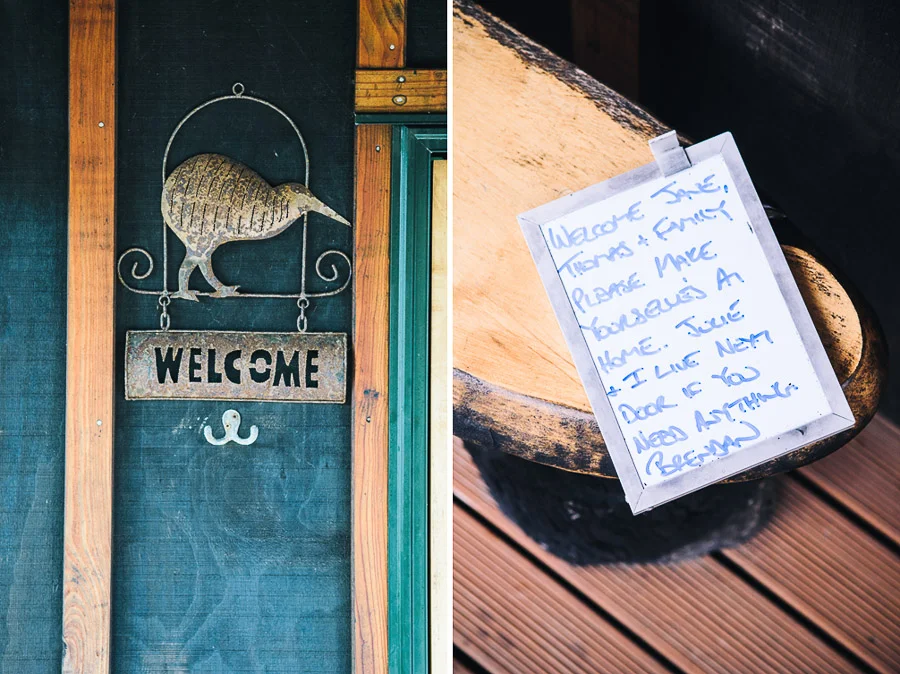 WELCOME
WELCOME JANE,
THOMAS + FAMILY
PLEASE MAKE
YOURSELVES AT
HOME. JULIE
+ I LIVE NEXT
DOOR IF YOU
NEED ANYTHING.
BRENDAN